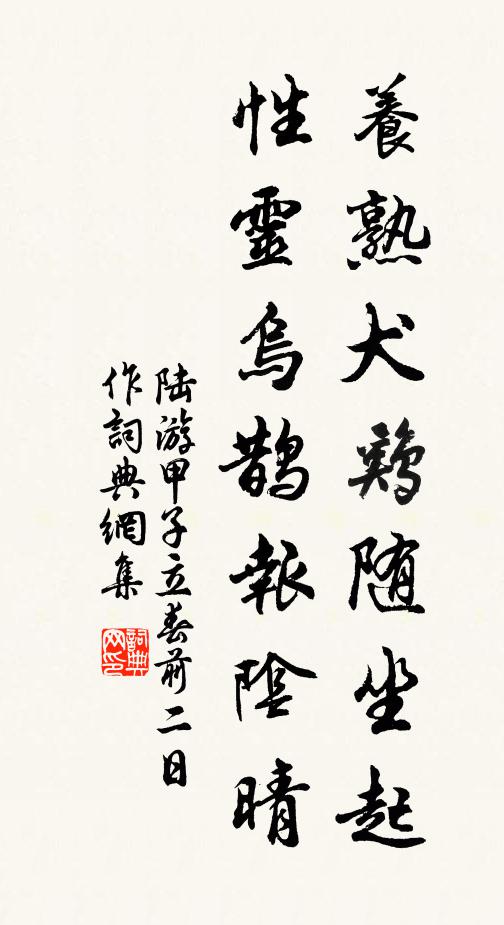 養熟犬鷄随坐起
性靈烏鵲報陰晴
陸游甲子立春前二日
作詞典網集
詞典网印